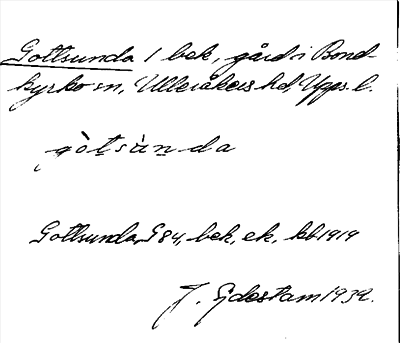 Gottsunda 1 bek, gård i Bond-
kyrko sn, Ulleråkers hd, Upps. l.
gòtsùnda
Gottsunda, G 84, bek, ek, kb 1919
J. Gidestam 1932.